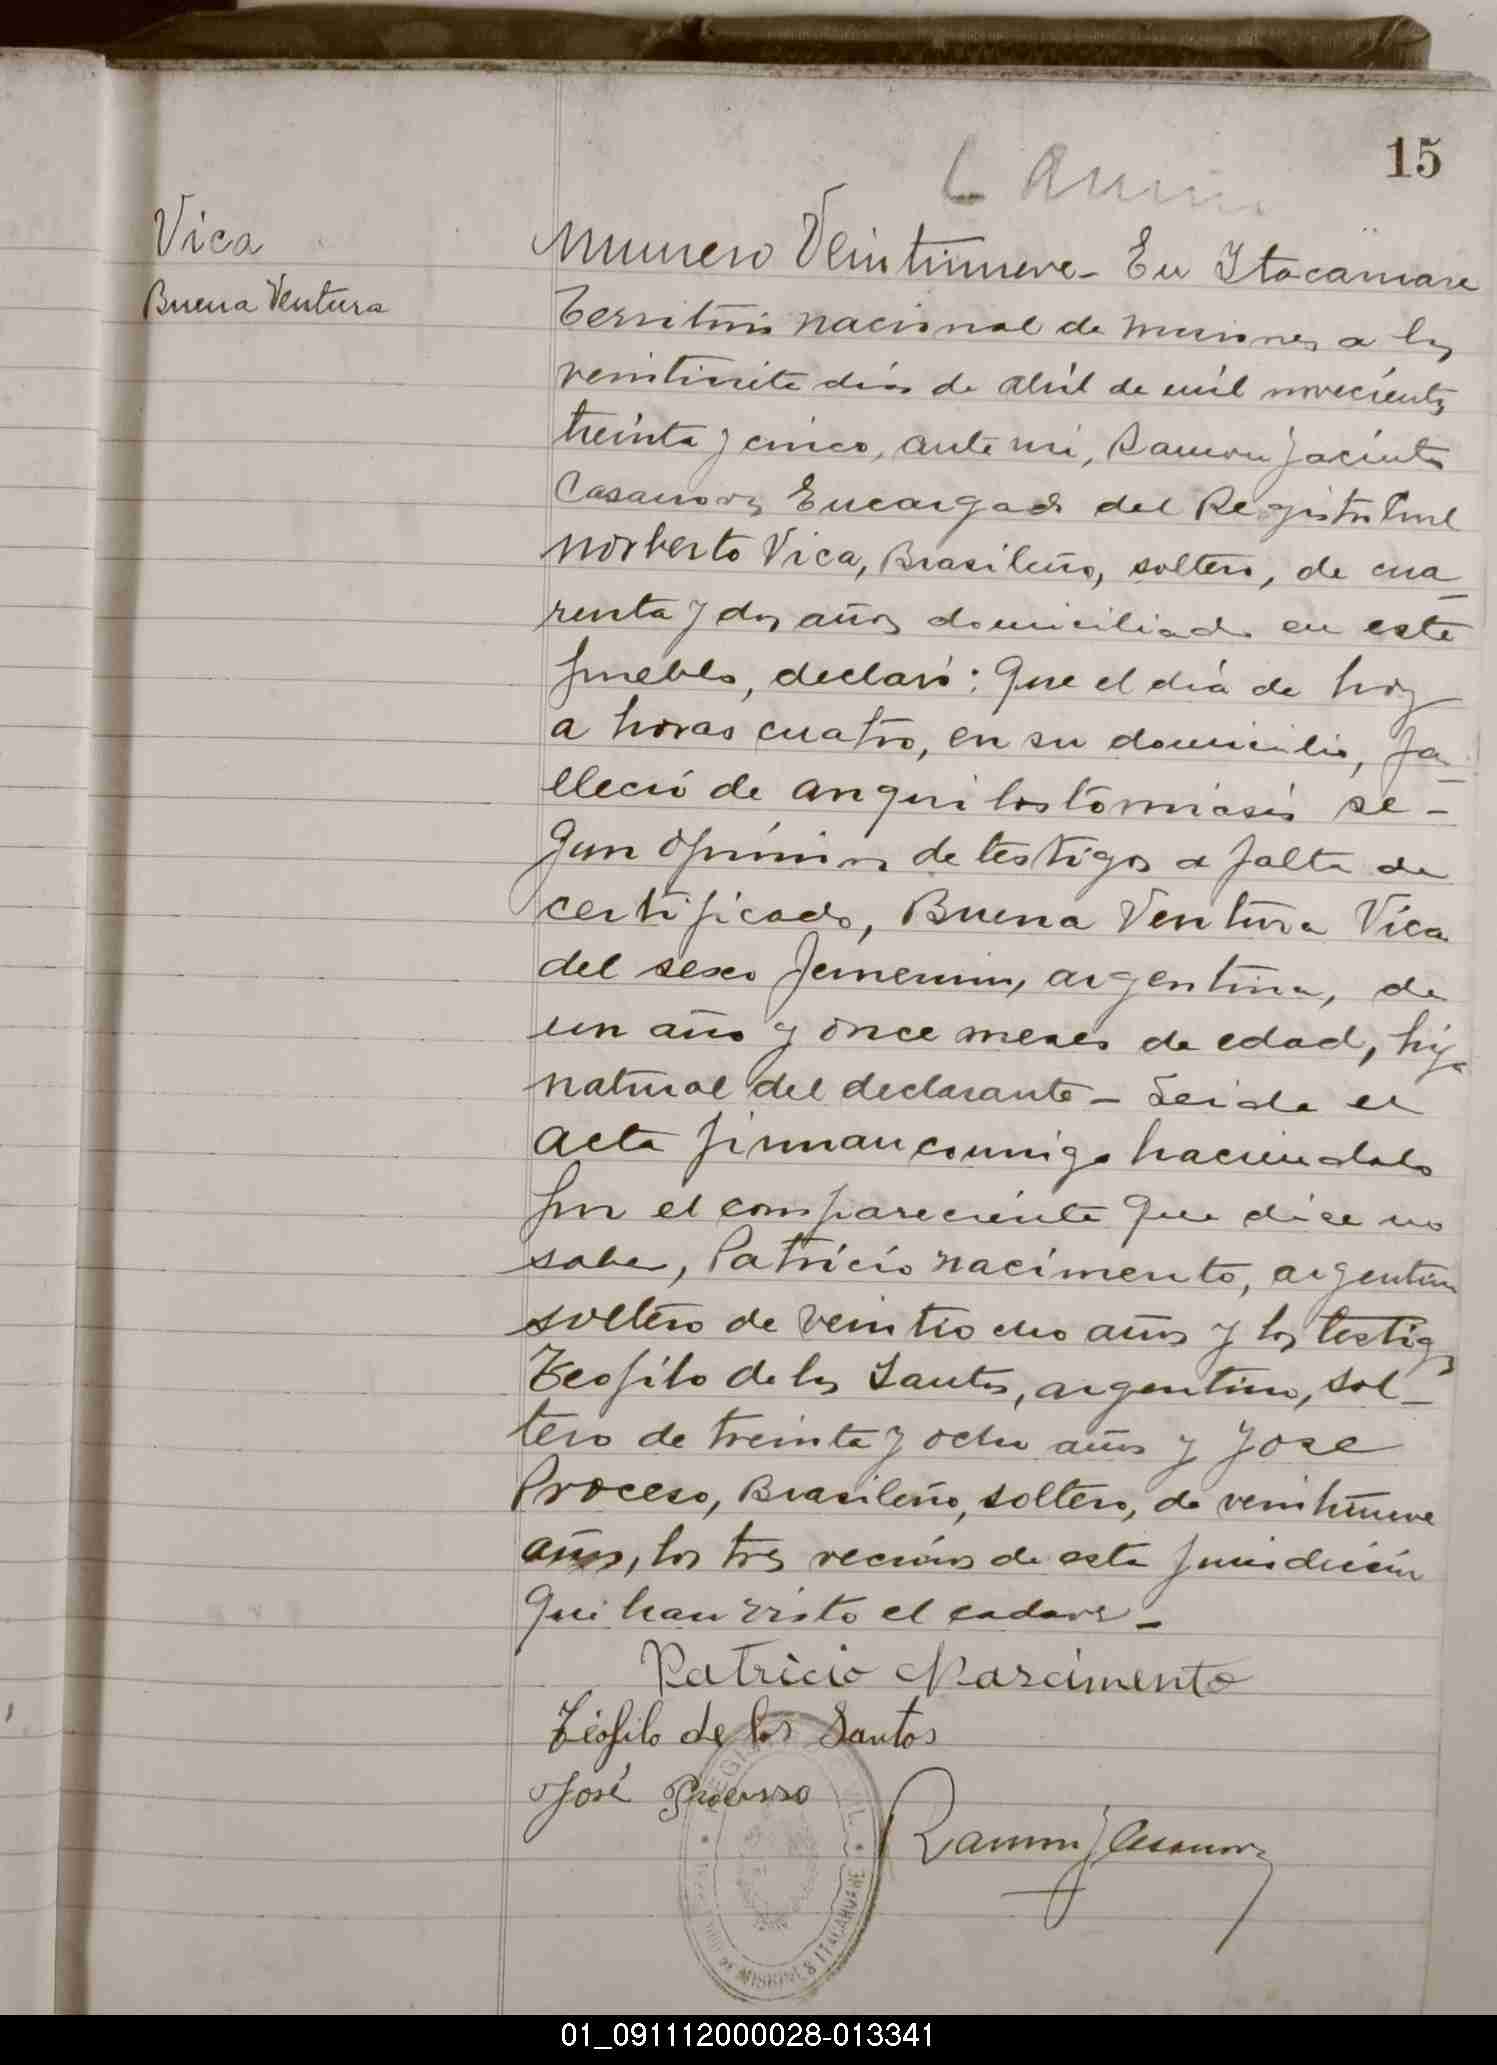 15
Vica
Buena Ventura
Numero Veintinueve - En Itacaruare
Territorio nacional de Misiones a los
veintisiete dias de abril de mil novecientos
treinta y cinco, ante mi, Ramon Jacinto
Casanova Encargado del Registro Civil
Norberto Vica, Brasileño, soltero, de cua-
renta y dos años domiciliado en este
pueblo, declaró: Que el día de hoy
a horas cuatro, en su domicilio, fa-
lleció de anquilostomiasis se-
gun opinion de testigos a falta de
certificado, Buena Ventura Vica
del sexo femenino, argentina, de
un año y once meses de edad, hija
natural del declarante - Leida el
acta firman conmigo haciendolo
por el compareciente que dice no
saber, Patricio Nacimento, argentino
soltero de veintiocho años y los testigos
Teofilo de los Santos, argentino, sol-
tero de treinta y ocho años y Jose
Proceso, Brasileño, soltero, de veintinueve
años, los tres vecinos de esta jurisdicción
que han visto el cadaver -
Patricio Narcimento
Teofilo de los Santos
José Processo
Ramon J Casanova
REGISTRO CIVIL
MISIONES ITACARUARE
01_091112000028-013341